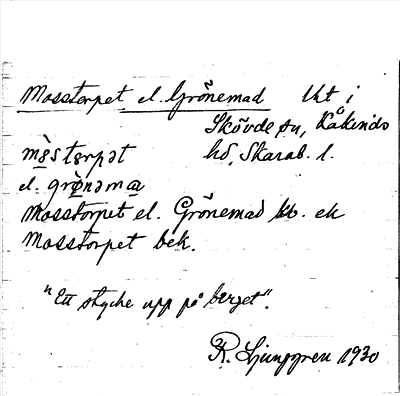 Mosstorpet el. Grönemad Ukt i
Skövde sn, Kåkinds
mɵ̀stɵrpət hd, Skarab. l.
el. grø̀nəmɑ
Mosstorpet el. Grönemad ek
Mosstorpet bek.
"Ett stycke upp på berget".
R. Ljunggren 1930